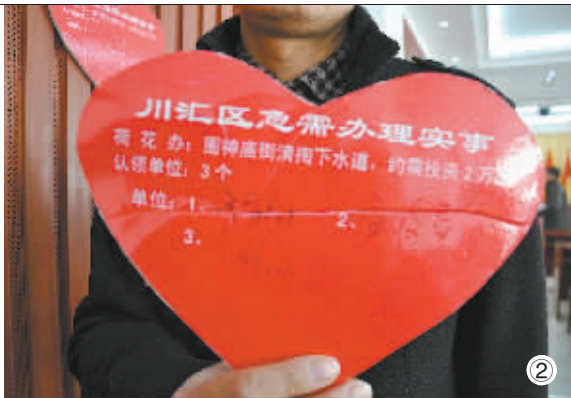 川汇区急需办理实事
荷花办：面神庙街清掏下水道，约需投资2万
认领单位：3个
单位：1、 2、
3、
②